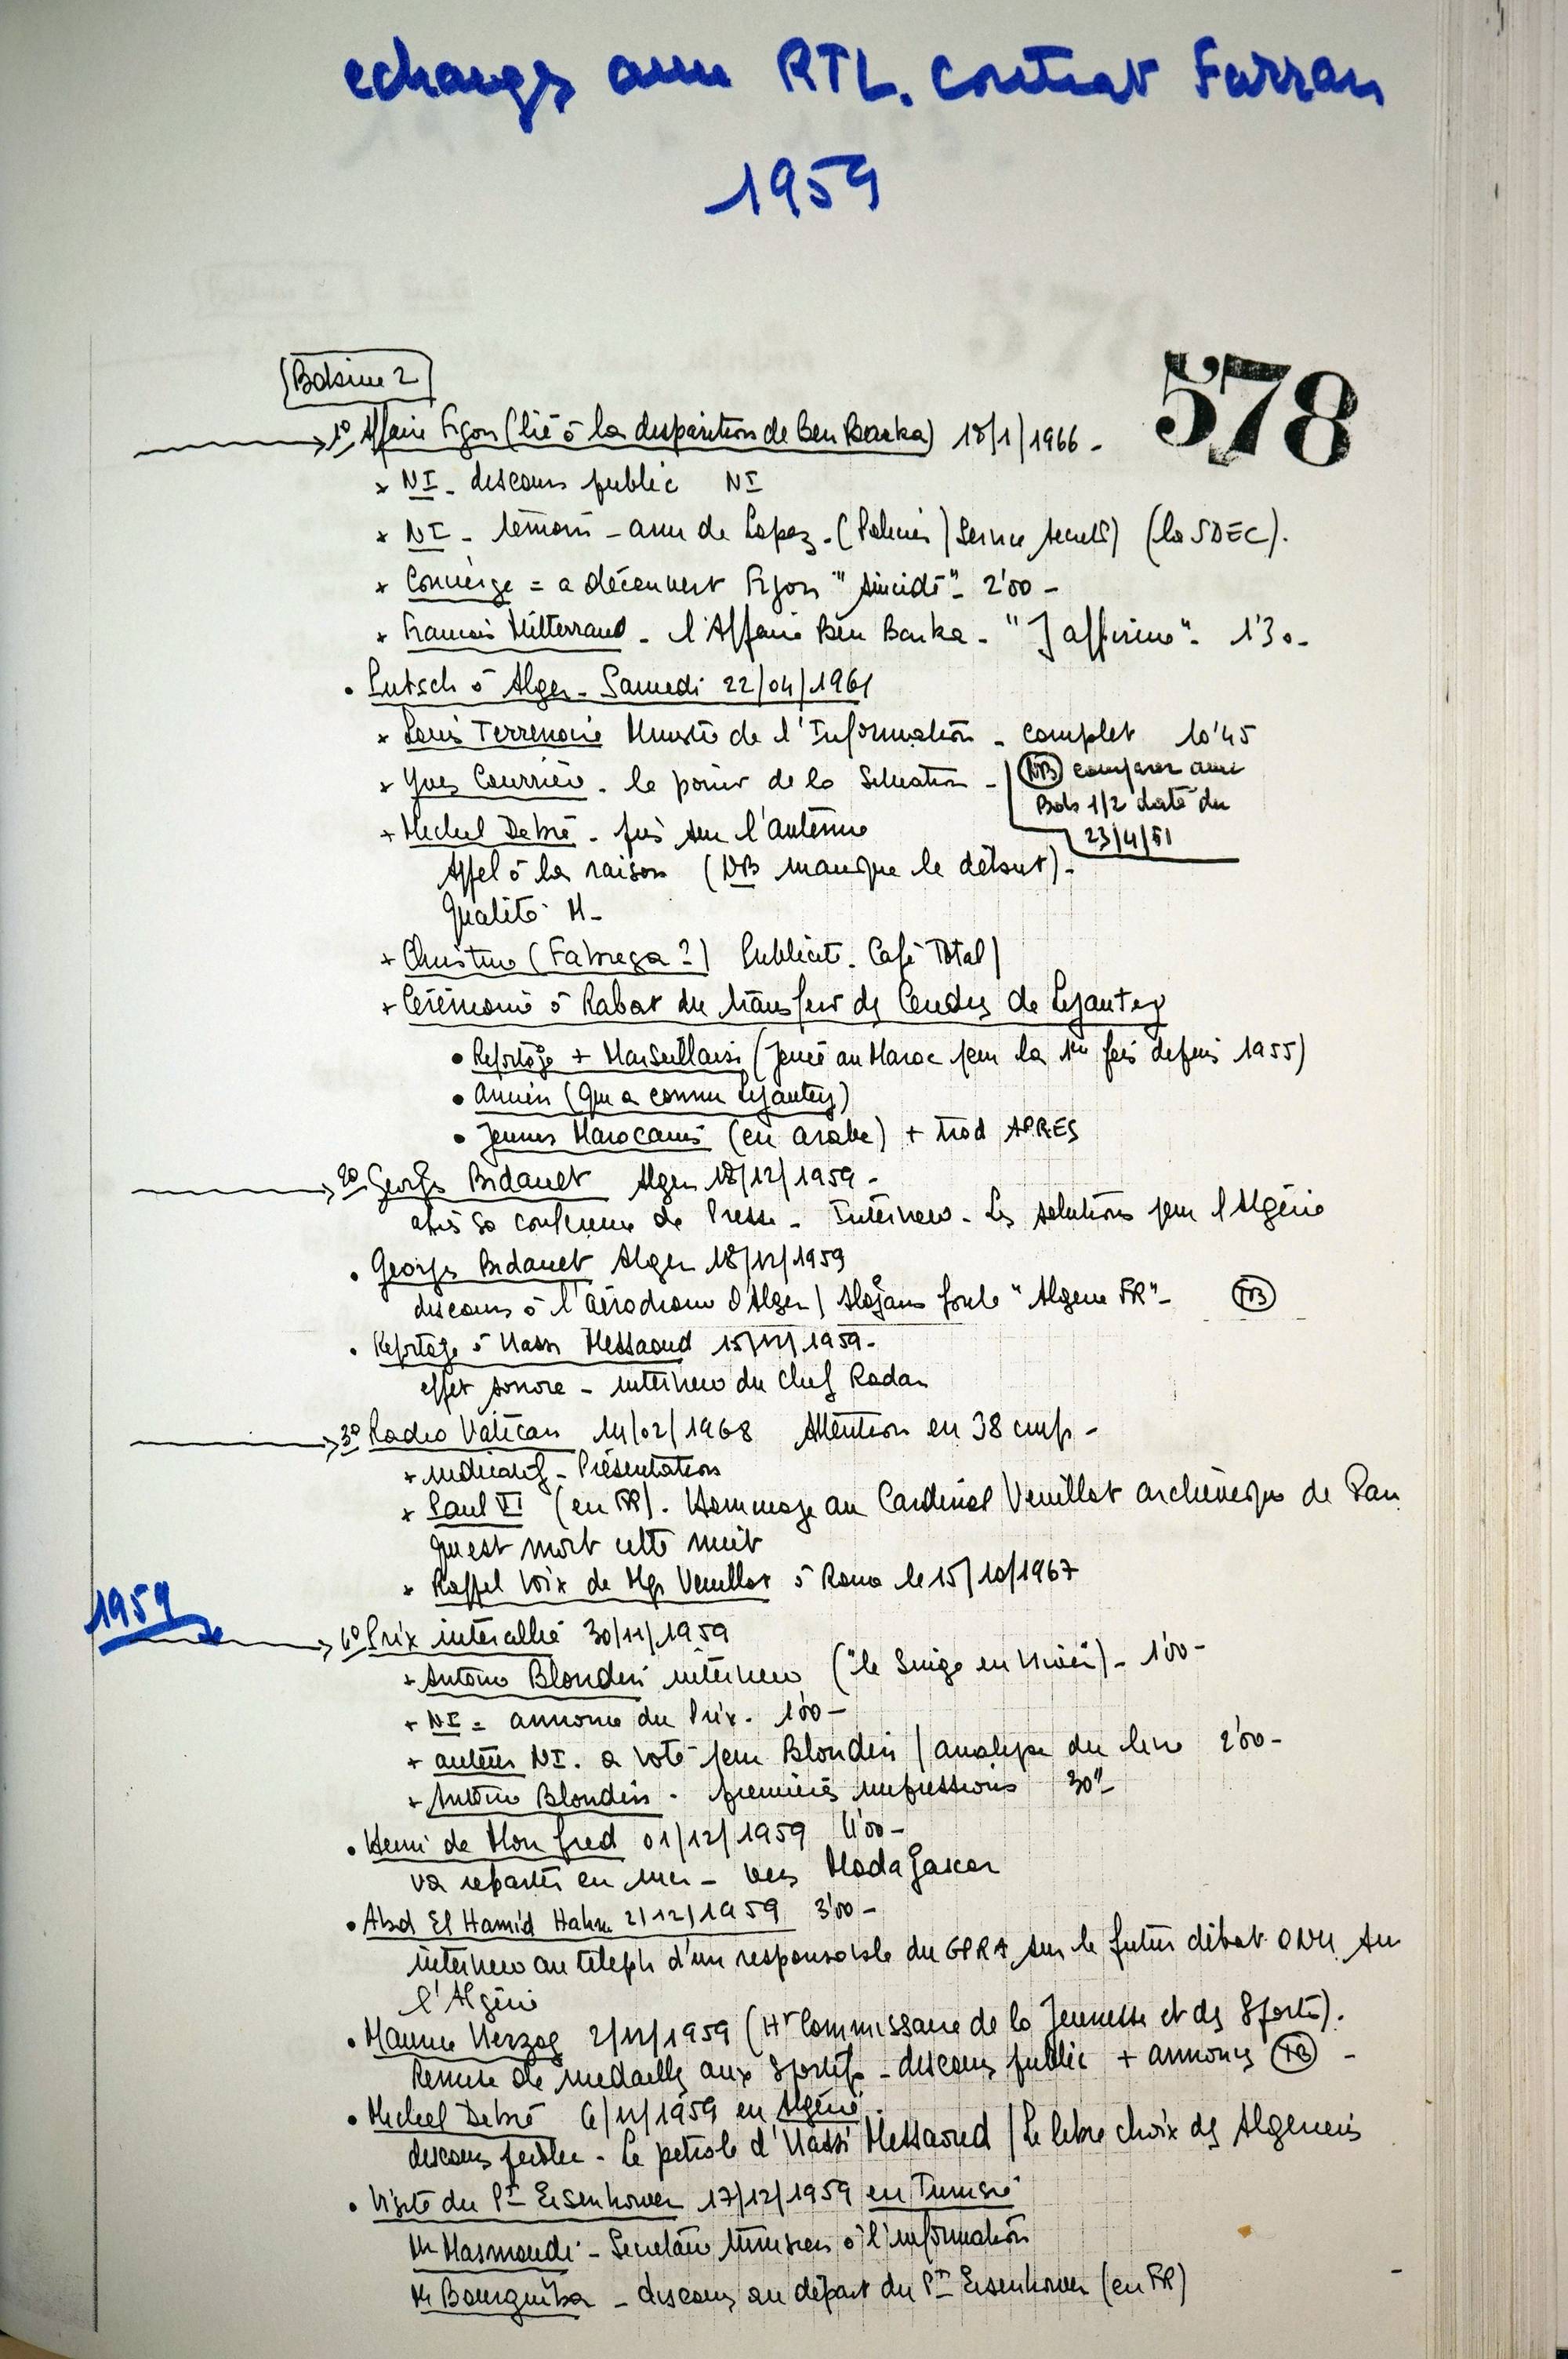 echanges avec RTL. contrat Farran
1959
578
Bobine 2
1° Affaire Figon (lié à la disparition de Ben Barka) 18/1/1966 -
+ NI - discours public NI
+ NI - témoin - ami de Lopez - (Policier / Service secrets) (la SDEC).
+ Concierge = a découvert Figon "suicidé" - 2'00 -
+ Francois Mitterrand - l'Affaire Ben Barka - "J'affirme" - 1'30 -
• Putsch à Alger - Samedi 22/04/1961
+ Louis Terrenoire Ministre de l'Information - complet 10'45
+ Yves Courrière - le point de la Situation -
NB comparer avec
Bob 1/2 daté du
23/4/61
+ Michel Debré - pris sur l'antenne
Appel à la raison (NB manque le début) -
Qualité M -
+ Christine (Fabrega ?) Publicité - Café Total /
+ Cérémonie à Rabat du transfert des Cendres de Lyautey
• Reportage + Marseillaise (jouée au Maroc pour la 1ère fois depuis 1955)
• ancien (qui a connu Lyautey)
• Jeunes Marocains (en arabe) + trad APRES
2° Georges Bidault Alger 18/12/1959 -
après sa conférence de Presse - Interview - Les solutions pour l'Algérie
• Georges Bidault Alger 18/12/1959
discours à l'aérodrome d'Alger / slogans foule "Algérie FR" - TB
• Reportage à Hassi Messaoud 15/12/1959 -
effet sonore - interview du chef Radar
3° Radio Vatican 14/02/1968 Attention en 38 cm/s -
+ indicatif - Présentation
+ Paul VI (en FR) - Hommage au Cardinal Veuillot archevêque de Paris
qui est mort cette nuit
+ Rappel voix de Mgr Veuillot à Rome le 15/10/1967
1959
4° Prix interallié 30/11/1959
+ Antoine Blondin interview ("le Singe en hiver") - 1'00 -
+ NI = annonce du Prix - 1'00 -
+ auteur NI - a voté pour Blondin / analyse du livre 2'00 -
+ Antoine Blondin - premières impressions 30"
• Henri de Monfred 01/12/1959 4'00 -
va repartir en mer - vers Madagascar
• Abd El Hamid 2/12/1959 3'00 -
interview au téléph d'un responsable du GPRA sur le futur débat ONU sur
l'Algérie
• Maurice Herzog 2/12/1959 (Ht Commissaire de la Jeunesse et des Sports).
Remise de médailles aux Sportifs - discours public + annonces TB -
• Michel Debré 6/12/1959 en Algérie
discours public - Le pétrole d'Hassi Messaoud / Le libre choix des Algériens
• Visite du Pt Eisenhower 17/12/1959 en Tunisie
Mr Masmoudi - Secrétaire tunisien à l'information
Mr Bourguiba - discours au départ du Pt Eisenhower (en FR)